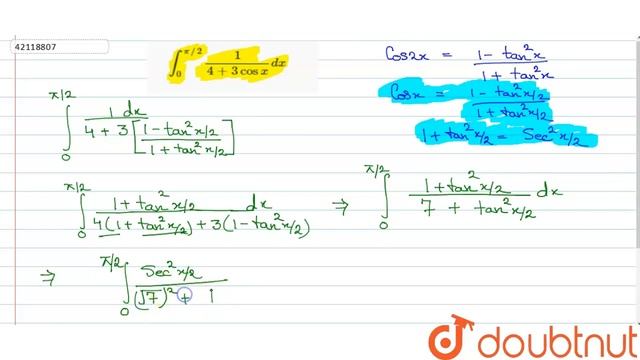 42118807
∫₀^{π/2} 1/(4 + 3 cos x) dx
Cos2x = (1 - tan²x)/(1 + tan²x)
Cosx = (1 - tan²x/2)/(1 + tan²x/2)
1 + tan²x/2 = Sec²x/2
∫₀^{π/2} 1 dx/(4 + 3[(1 - tan²x/2)/(1 + tan²x/2)])
∫₀^{π/2} (1 + tan²x/2)/(4(1 + tan²x/2) + 3(1 - tan²x/2)) dx ⇒ ∫₀^{π/2} (1 + tan²x/2)/(7 + tan²x/2) dx
⇒ ∫₀^{π/2} Sec²x/2/((√7)² +
doubtnut